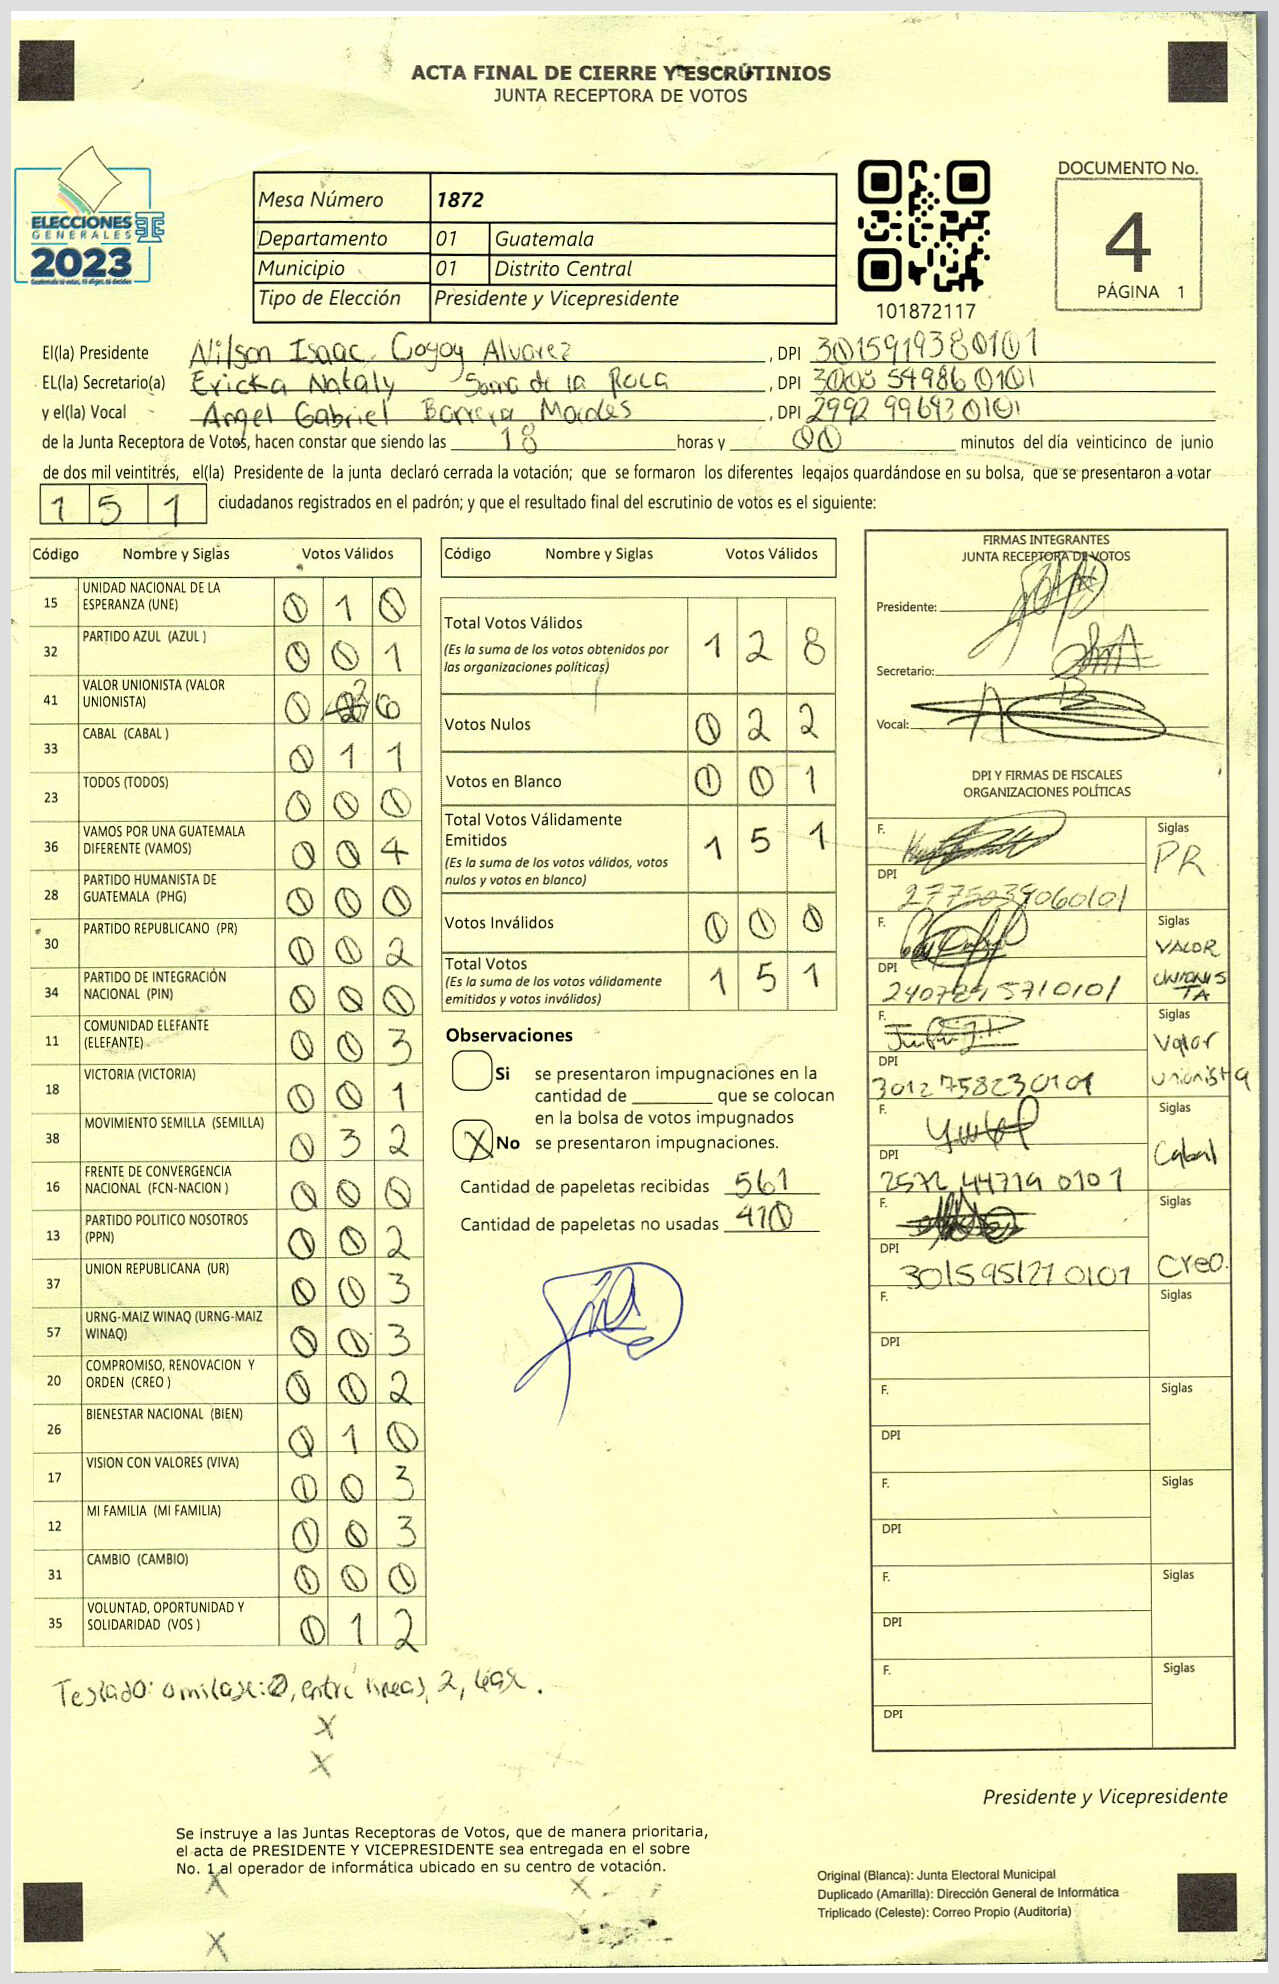 ACTA FINAL DE CIERRE Y ESCRUTINIOS
JUNTA RECEPTORA DE VOTOS
ELECCIONES
GENERALES
2023
Mesa Número 1872
Departamento 01 Guatemala
Municipio 01 Distrito Central
Tipo de Elección Presidente y Vicepresidente
101872117
DOCUMENTO No.
4
PÁGINA 1
El(la) Presidente Nilson Isaac Coyoy Alvarez, DPI 3015919380101
EL(la) Secretario(a) Ericka Nataly de la Roca, DPI 3008 54986 0101
y el(la) Vocal Angel Gabriel Barrera Morales, DPI 2992 99693 0101
de la Junta Receptora de Votos, hacen constar que siendo las 18 horas y 00 minutos del día veinticinco de junio
de dos mil veintitrés, el(la) Presidente de la junta declaró cerrada la votación; que se formaron los diferentes legajos guardándose en su bolsa, que se presentaron a votar
151 ciudadanos registrados en el padrón; y que el resultado final del escrutinio de votos es el siguiente:
Código Nombre y Siglas Votos Válidos
15 UNIDAD NACIONAL DE LA ESPERANZA (UNE) 0 1 0
32 PARTIDO AZUL (AZUL ) 0 0 1
41 VALOR UNIONISTA (VALOR UNIONISTA) 0 2 6
33 CABAL (CABAL ) 0 1 1
23 TODOS (TODOS) 0 0 0
36 VAMOS POR UNA GUATEMALA DIFERENTE (VAMOS) 0 0 4
28 PARTIDO HUMANISTA DE GUATEMALA (PHG) 0 0 0
30 PARTIDO REPUBLICANO (PR) 0 0 2
34 PARTIDO DE INTEGRACIÓN NACIONAL (PIN) 0 0 0
11 COMUNIDAD ELEFANTE (ELEFANTE) 0 0 3
18 VICTORIA (VICTORIA) 0 0 1
38 MOVIMIENTO SEMILLA (SEMILLA) 0 3 2
16 FRENTE DE CONVERGENCIA NACIONAL (FCN-NACION ) 0 0 0
13 PARTIDO POLITICO NOSOTROS (PPN) 0 0 2
37 UNION REPUBLICANA (UR) 0 0 3
57 URNG-MAIZ WINAQ (URNG-MAIZ WINAQ) 0 0 3
20 COMPROMISO, RENOVACION Y ORDEN (CREO ) 0 0 2
26 BIENESTAR NACIONAL (BIEN) 0 1 0
17 VISION CON VALORES (VIVA) 0 0 3
12 MI FAMILIA (MI FAMILIA) 0 0 3
31 CAMBIO (CAMBIO) 0 0 0
35 VOLUNTAD, OPORTUNIDAD Y SOLIDARIDAD (VOS ) 0 1 2
Testado: omitase: 0, entre lineas, 2, lease.
Código Nombre y Siglas Votos Válidos
Total Votos Válidos 1 2 8
(Es la suma de los votos obtenidos por las organizaciones políticas)
Votos Nulos 0 2 2
Votos en Blanco 0 0 1
Total Votos Válidamente Emitidos 1 5 1
(Es la suma de los votos válidos, votos nulos y votos en blanco)
Votos Inválidos 0 0 0
Total Votos 1 5 1
(Es la suma de los votos válidamente emitidos y votos inválidos)
Observaciones
Si se presentaron impugnaciones en la
cantidad de ________ que se colocan
en la bolsa de votos impugnados
X No se presentaron impugnaciones.
Cantidad de papeletas recibidas 561
Cantidad de papeletas no usadas 410
FIRMAS INTEGRANTES
JUNTA RECEPTORA DE VOTOS
Presidente:
Secretario:
Vocal:
DPI Y FIRMAS DE FISCALES
ORGANIZACIONES POLÍTICAS
F. Siglas PR
DPI 2775039060101
F. Siglas VALOR UNIONISTA
DPI 2407295710101
F. Siglas Valor unionista
DPI 3012758230101
F. Siglas Cabal
DPI 2572 44719 0101
F. Siglas Creo.
DPI 3015951270101
F. Siglas
DPI
F. Siglas
DPI
F. Siglas
DPI
F. Siglas
DPI
F. Siglas
DPI
Presidente y Vicepresidente
Se instruye a las Juntas Receptoras de Votos, que de manera prioritaria,
el acta de PRESIDENTE Y VICEPRESIDENTE sea entregada en el sobre
No. 1 al operador de informática ubicado en su centro de votación.
Original (Blanca): Junta Electoral Municipal
Duplicado (Amarilla): Dirección General de Informática
Triplicado (Celeste): Correo Propio (Auditoria)